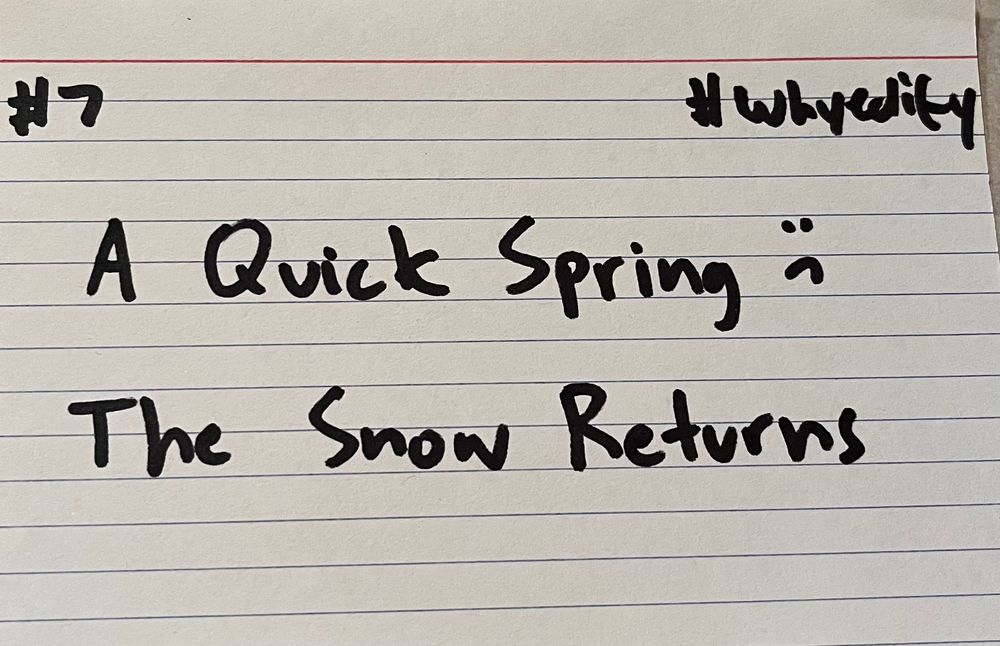 #7 #whyedify
A Quick Spring :(
The Snow Returns